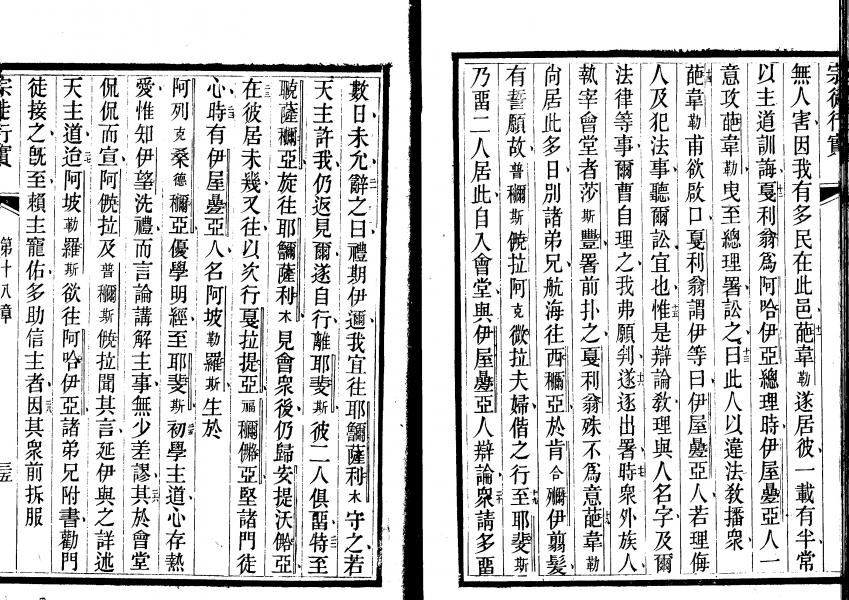 宗徒行實
無人害因我有多民在此邑葩韋勒遂居彼一載有半常
以主道訓誨戛利翁爲阿哈伊亞總理時伊屋疊亞人一
意攻葩韋勒曳至總理署訟之曰此人以違法敎播衆
葩韋勒甫欲啟口戛利翁謂伊等曰伊屋疊亞人若理侮
人及犯法事聽爾訟宜也惟是辯論敎理與人名字及爾
法律等事爾曹自理之我弗願判遂逐出署時衆外族人
執宰會堂者莎斯豐署前扑之戛利翁殊不爲意葩韋勒
尙居此多日別諸弟兄航海往西穪亞於肯合殢伊翦髮
有誓願故普穪斯僥拉阿克微拉夫婦偕之行至耶斐斯
乃畱二人居此自入會堂與伊屋疊亞人辯論衆請多畱
數日未允辭之曰禮期伊邇我宜往耶髗薩利木守之若
天主許我仍返見爾遂自行離耶斐斯彼二人俱畱特至
薩穪亞旋往耶髗薩利木見會衆後仍歸安提沃僃亞
在彼居未幾又往以次行戛拉提亞福穪僃亞堅諸門徒
心時有伊屋疊亞人名阿坡勒羅斯生於
阿列克桑德穪亞優學明經至耶斐斯初學主道心存熱
愛惟知伊望洗禮而言論講解主事無少差謬其於會堂
侃侃而宣阿僥拉及普穪斯僥拉聞其言延伊與之詳述
天主道迨阿坡勒羅斯欲往阿哈伊亞諸弟兄附書勸門
徒接之旣至賴主寵佑多助信主者因其衆前拆服
宗徒行實
第十八章
三五